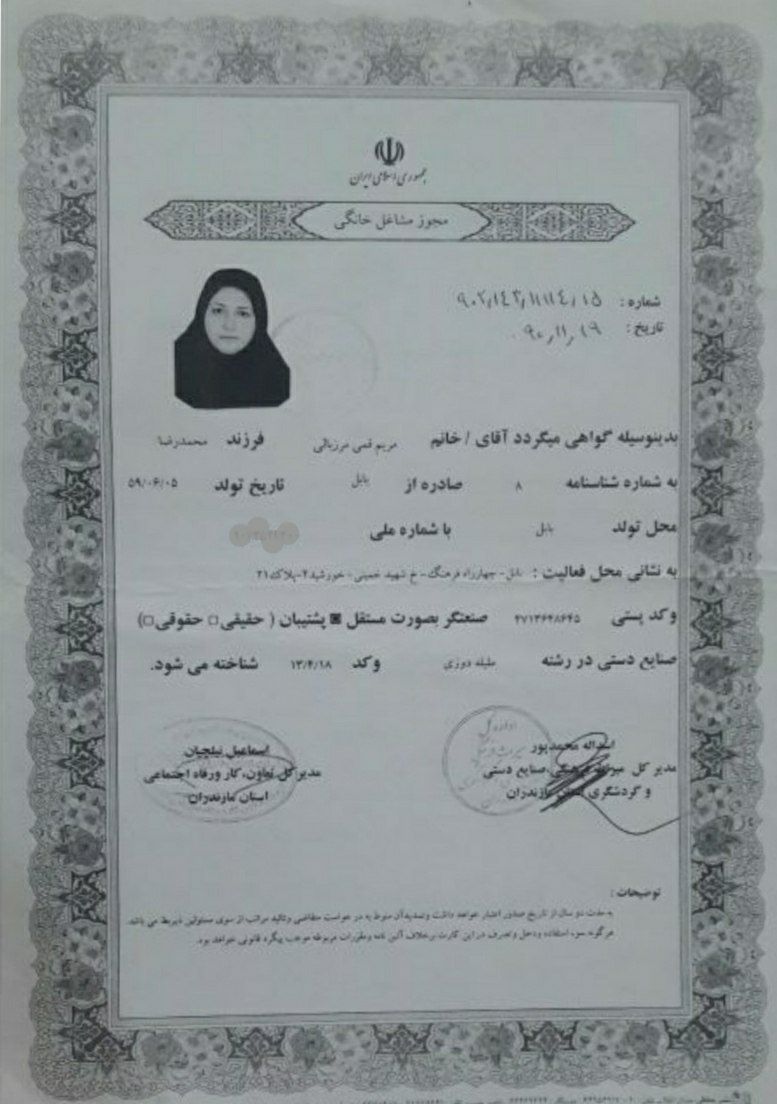 جمهوری اسلامی ایران
مجوز مشاغل خانگی
شماره : ۹۰۲/۱۴۲/۱۱۱۱۴/۱۵
تاریخ : ۹۰/۱۱/۱۹
بدینوسیله گواهی میگردد آقای / خانم مریم قمی مرزبالی فرزند محمدرضا
به شماره شناسنامه ۸ صادره از بابل تاریخ تولد ۵۹/۰۶/۰۵
محل تولد بابل با شماره ملی
به نشانی محل فعالیت : بابل- چهارراه فرهنگ- خ شهید خمینی- خورشید۲-پلاک۲۱
وکد پستی ۴۷۱۳۶۴۸۶۴۵ صنعتگر بصورت مستقل پشتیبان ( حقیقی حقوقی)
صنایع دستی در رشته ملیله دوزی وکد ۱۳/۴/۱۸ شناخته می شود.
اسداله محمدپور
مدیر کل میراث فرهنگی،صنایع دستی
و گردشگری استان مازندران
اسماعیل نیلچیان
مدیرکل تعاون،کار ورفاه اجتماعی
استان مازندران
توضیحات :
به مدت دو سال از تاریخ صدور اعتبار خواهد داشت وتمدیدآن منوط به در خواست متقاضی وتائید مراتب از سوی مسئولین ذیربط می باشد.
هرگونه سوء استفاده ودخل وتصرف در این کارت برخلاف آئین نامه ومقررات مربوطه موجب پیگرد قانونی خواهد بود.